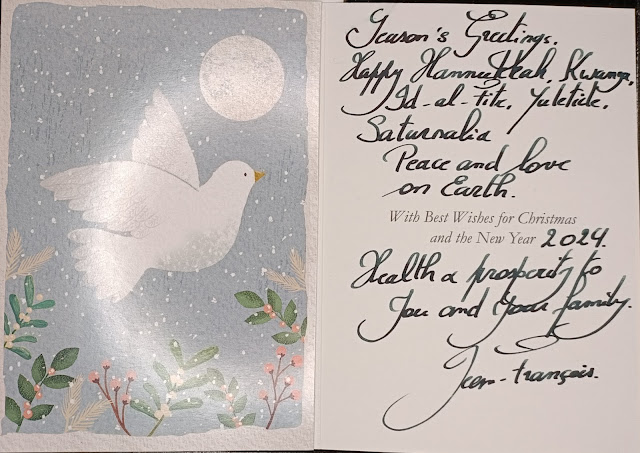 Season's Greetings,
Happy Hannukkah, Kwanza,
Id-al-Fitr, Yuletide,
Saturnalia
Peace and love
on Earth.
With Best Wishes for Christmas
and the New Year 2024.
Health & prosperity to
You and Your family.
Jean-François.